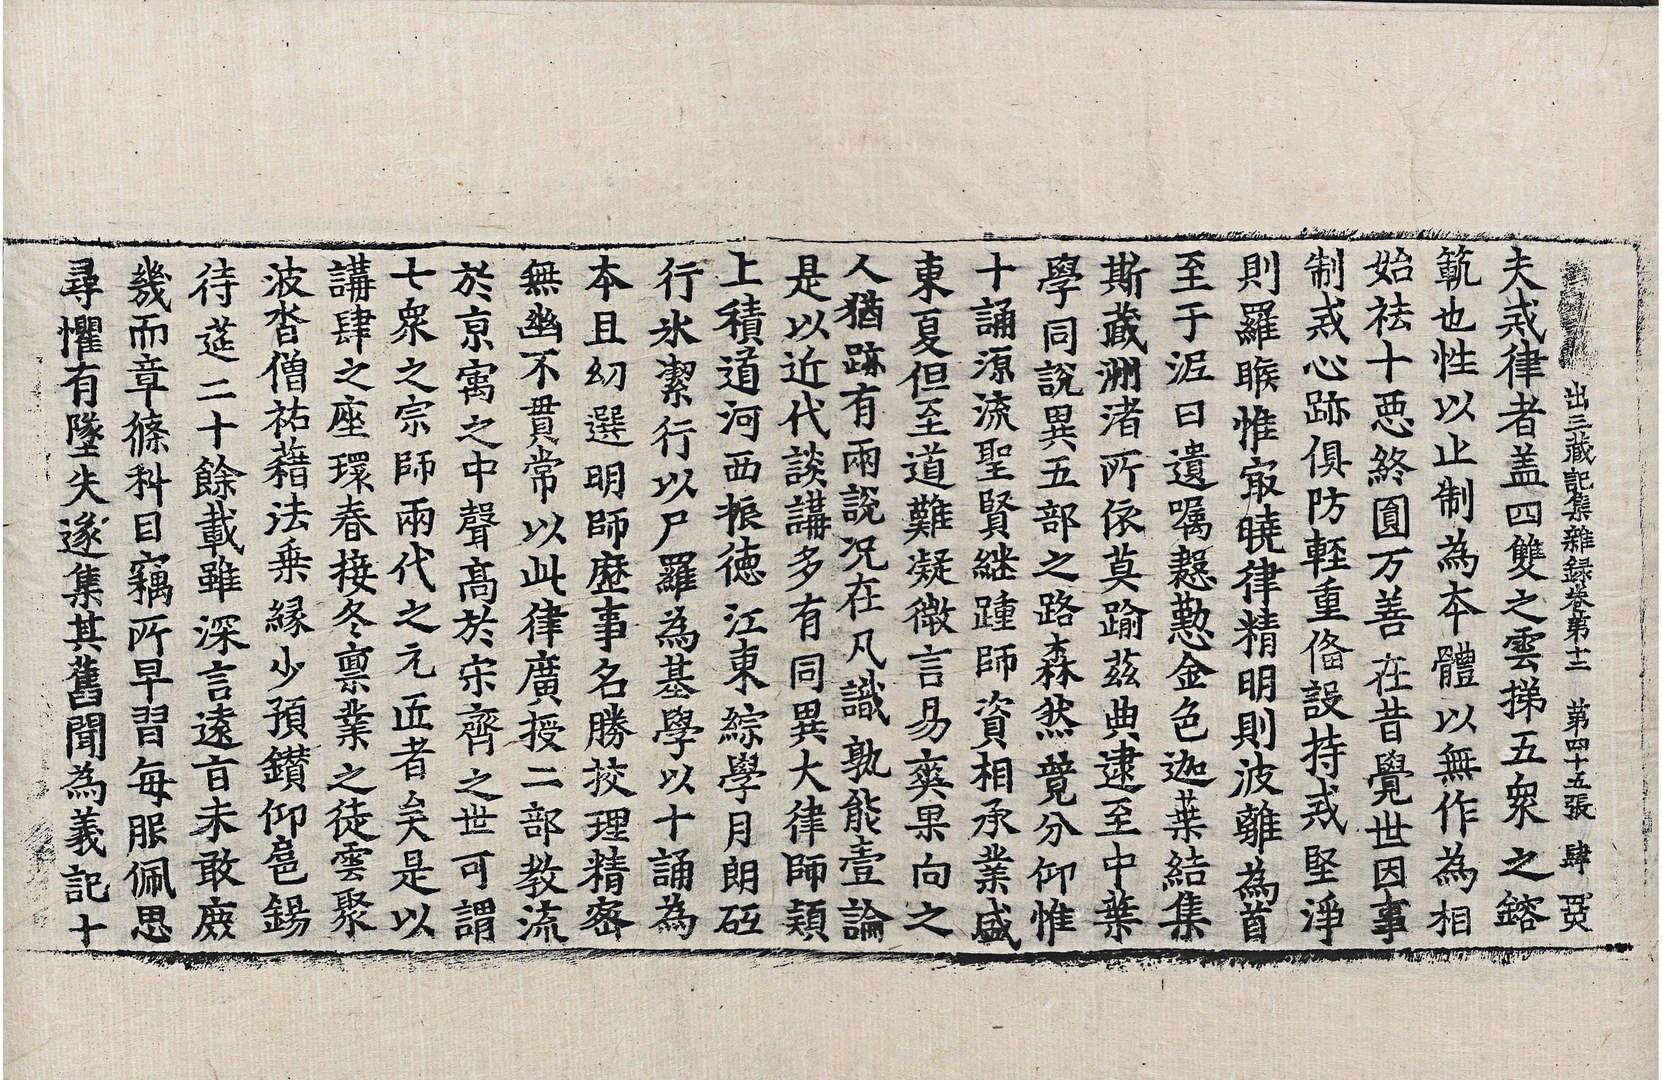 出三藏記集雜録卷第十二 第四十五張 肆 英
夫戒律者盖四雙之雲梯五衆之鎔
範也性以止制為本體以無作為相
始袪十惡終圓万善在昔覺世因事
制戒心跡俱防輕重俻設持戒堅淨
則羅睺惟冣曉律精明則波離為首
至于泥曰遺囑慇懃金色迦葉結集
斯藏洲渚所依莫踰茲典逮至中葉
學同說異五部之路森然競分仰惟
十誦源流聖賢継踵師資相承業盛
東夏但至道難凝微言易爽果向之
人猶跡有兩說况在凡識孰能壹論
是以近代談講多有同異大律師頴
上積道河西振徳江東綜學月朗砥
行氷潔行以尸羅為基學以十誦為
本且㓜選明師歷事名勝挍理精宻
無幽不貫常以此律廣授二部教流
於京㝢之中聲髙於宋齊之世可謂
七衆之宗師兩代之元匠者矣是以
講肆之座環春接冬禀業之徒雲聚
波沓僧祐藉法乗縁少預鑚仰扈錫
待莚二十餘載雖深言遠㫖未敢庻
幾而章條科目竊所早習每服佩思
尋懼有墜失遂集其舊聞為義記十